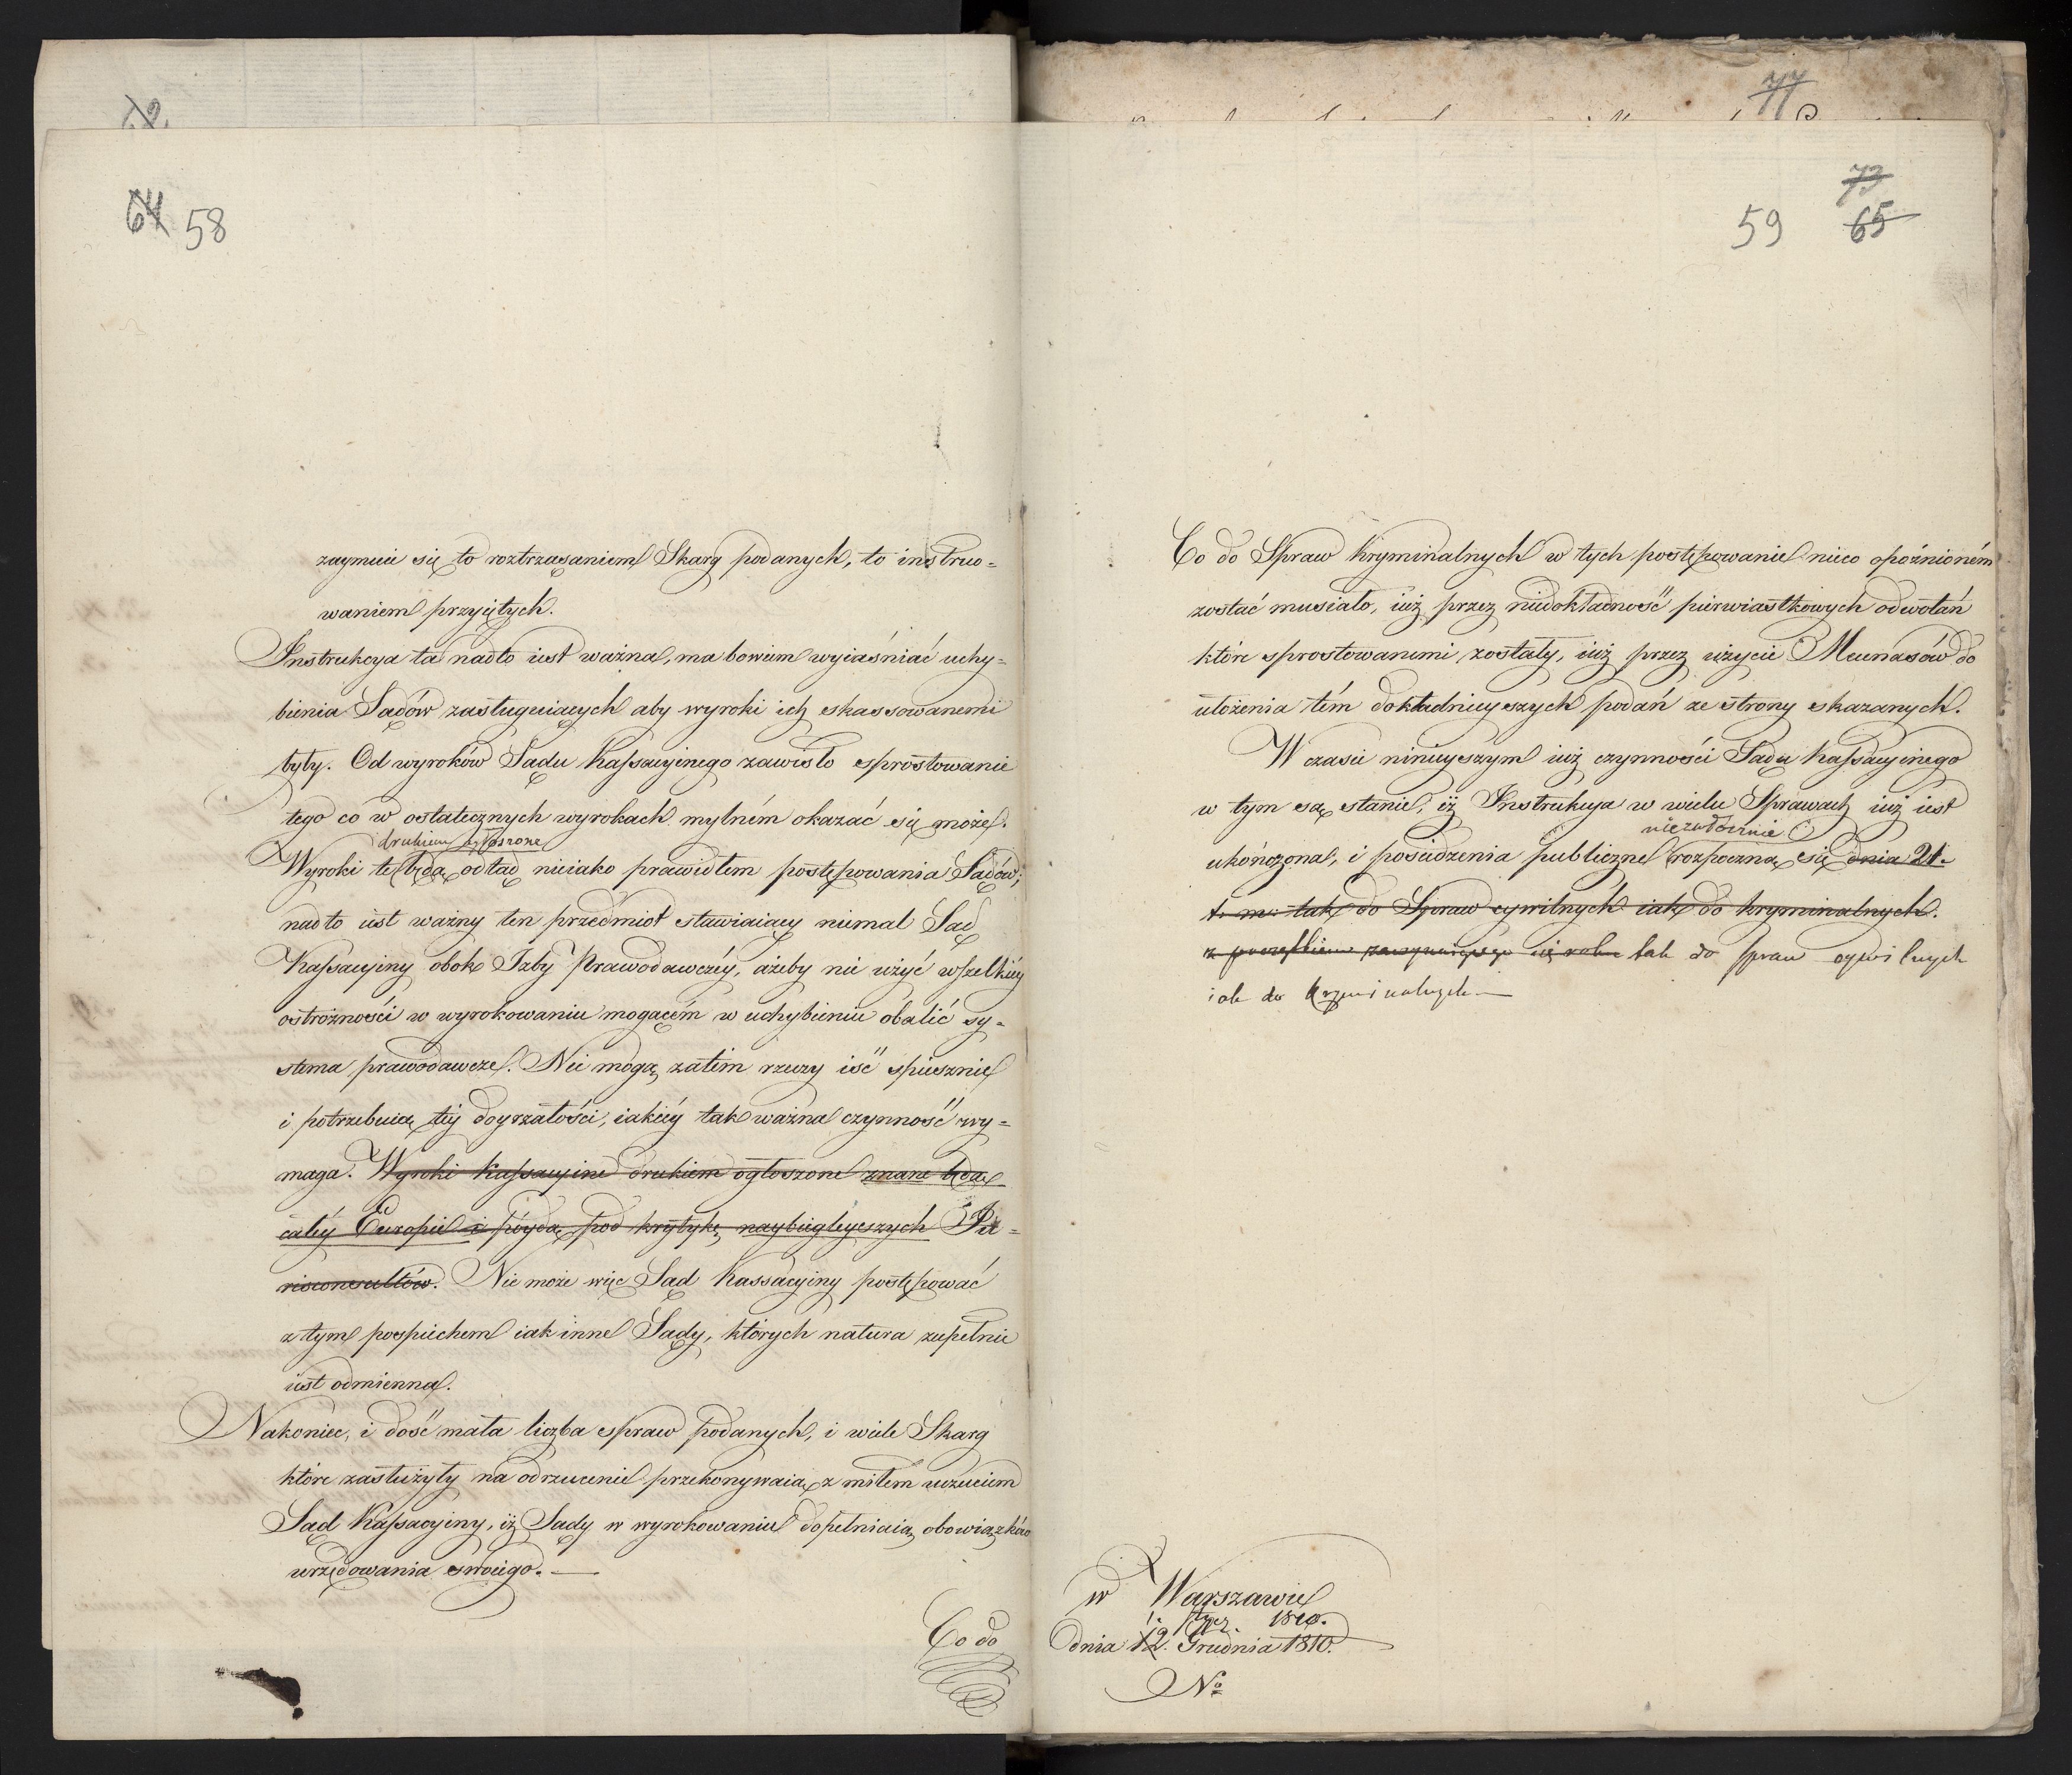 72.
64 58
zaymuie się to roztrząsaniem Skarg podanych, to instruo-
waniem przyiętych.
Instrukcya ta nadto iest ważna, ma bowiem wyiaśniać uchy-
bienia Sądów zasługuiących aby wyroki ich skassowanemi
były. Od wyroków Sądu Kassacyinego zawisło sprostowanie
tego co w ostatecznych wyrokach mylném okazać się może.
drukiem ogłoszone
Wyroki te będą odtąd nieiako prawidłem postępowania Sądów;
nadto iest ważny ten przedmiot stawiaiący niemal Sąd
Kassacyiny obok Izby Prawodawczéy, ażeby nie użyć wszelkiéy
ostrożności w wyrokowaniu mogącém w uchybieniu obalić sy-
stema prawodawcze. Nie mogą zatem rzeczy iść spiesznie
i potrzebuią téy doyrzałości, iakiéy tak ważna czynność wy-
maga. Wyroki Kassacyine drukiem ogłoszone znane będą
całéy Europie i póydą pod krytykę naybiegleyszych Ju-
risconsultów. Nie może więc Sąd Kassacyiny postępować
z tym pospiechem iak inne Sądy, których natura zupełnie
iest odmienna.
Nakoniec, i dość mała liczba spraw podanych, i wiele Skarg
które zasłużyły na odrzucenie przekonywaią z miłem uczuciem
Sąd Kassacyiny, iż Sądy w wyrokowaniu dopełniaią obowiązków
urzędowania swoiego. —
Co do
77
73
59 65
Co do Spraw kryminalnych w tych postępowanie nieco opóźnioném
zostać musiało, iuż przez niedokładność pierwiastkowych odwołań
które sprostowanemi zostały, iuż przez użycie Mecenasów do
ułożenia tém dokładnieyszych podań ze strony skazanych.
W czasie ninieyszym iuż czynności Sądu Kassacyinego
w tym są stanie, iż Instrukcya w wielu Sprawach iuż iest
niezadłumie
ukończona, i posiedzenia publiczne rozpoczną się dnia 21.
t. m. tak do Spraw cywilnych iak do kryminalnych.
z początkiem zaczynaiącego się roku tak do spraw cywilnych
iak do kryminalnych —
w Warszawie
1. stycz. 1810.
dnia 12. Grudnia 1810.
No